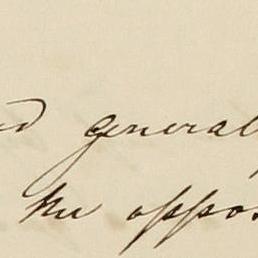 general
the oppos